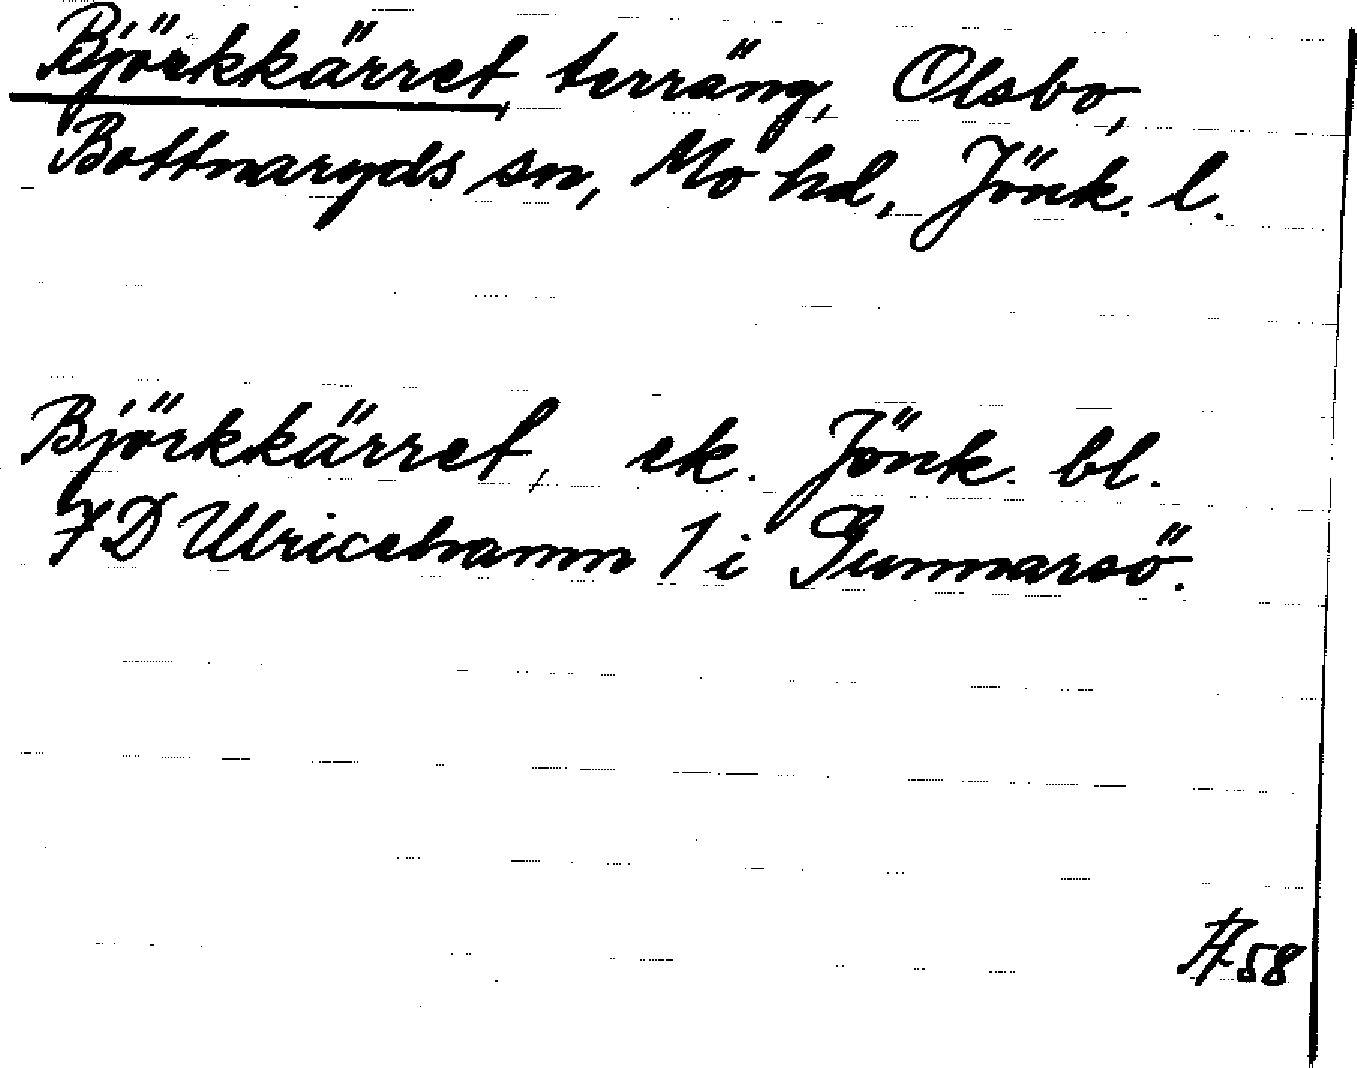 Björkkärret, terräng, Olsbo,
Bottnaryds sn, Mo hd, Jönk. l.
Björkkärret, ek. Jönk. bl.
7D Ulricehamn 1 i Gunnarsö.
58